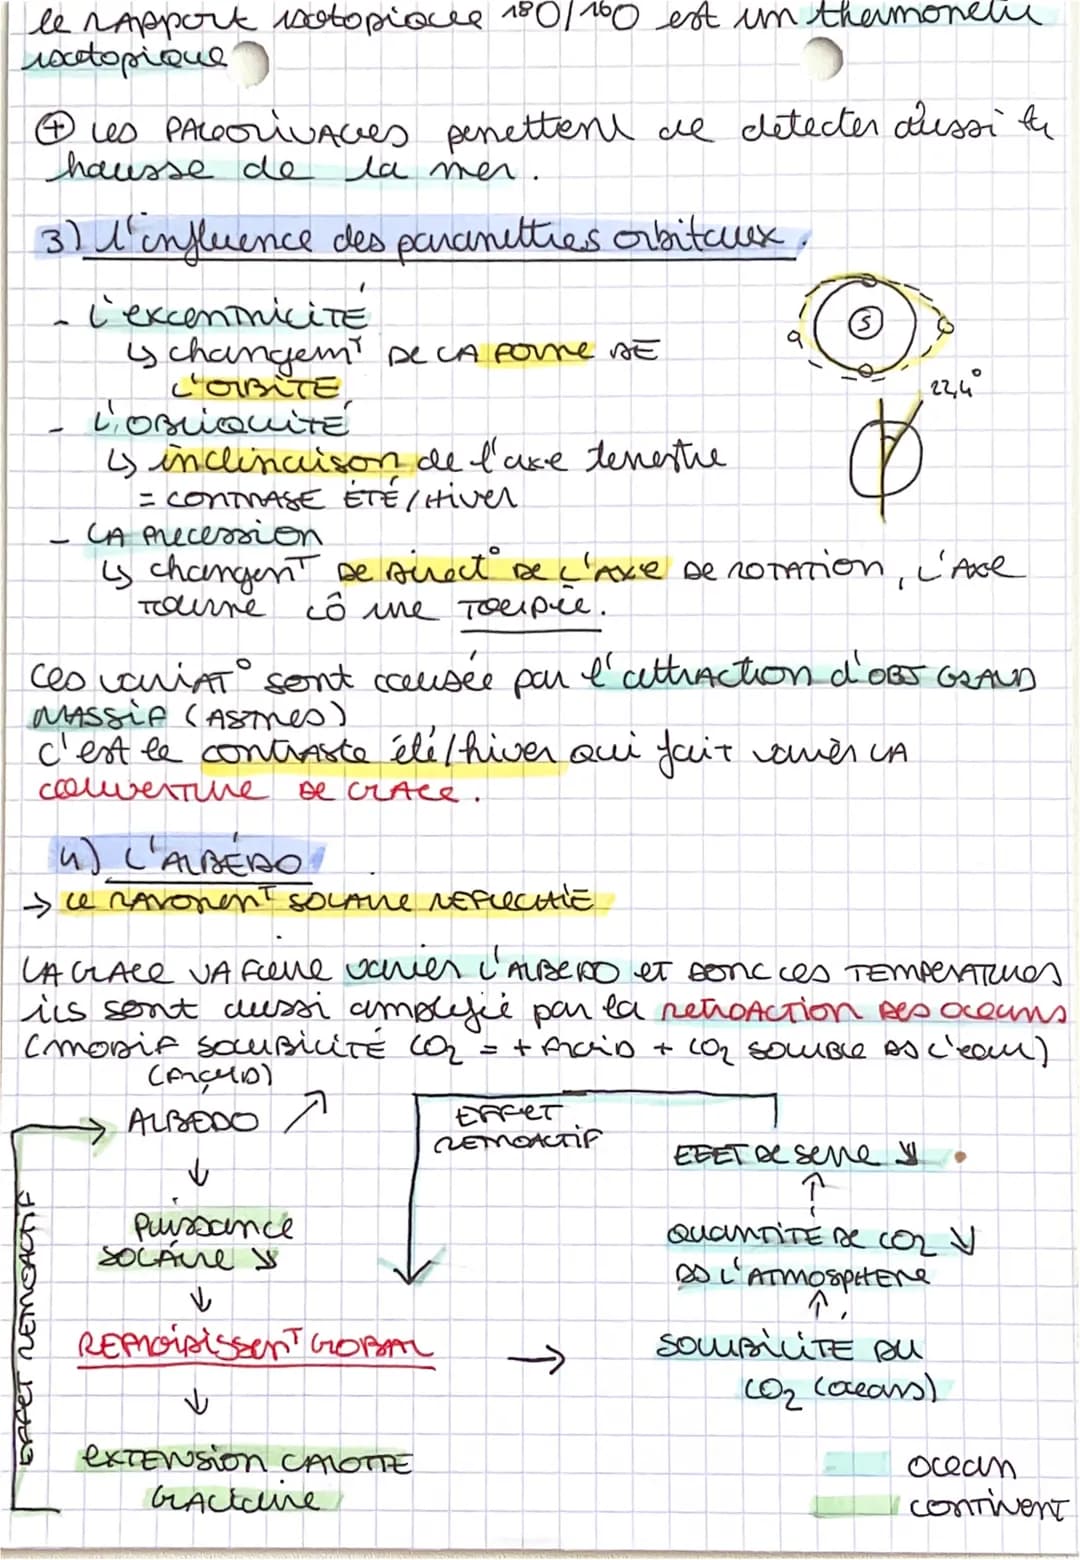 le rapport isotopique 18O/16O est un thermometre
isotopique
⊕ Les PALEORIVAGES permettent de detecter aussi la
hausse de la mer.
3) L'influence des parametres orbitaux.
- L'excentricité
↳ changemT DE LA FORME DE
L'ORBITE
- L'OBLIQUITÉ
↳ inclinaison de l'axe terrestre
= CONTRASE ÉTÉ/Hiver
22,4°
S
- LA Precession
↳ changemT DE Direct° DE L'AXE DE ROTATION, L'AXE
TOURNE cô une TOUPIE.
Ces variAT° sont causée par l'attrACTION d'OBJ GRAND
MASSIF (ASTRES)
c'est le contraste été/hiver qui fait varier LA
couverture DE GLACE.
4) L'ALBÉDO
→ LE RAYONENT SOLAIRE REFLECHIE
LA GLACE VA FAIRE varier L'ALBEDO ET DONC LES TEMPERATURES
ils sont aussi amplifié par la retroACTION DES oceans
(MODIF SOLUBILITÉ CO2 = + FROID + CO2 SOLUBLE DS L'eau)
(FROID)
ALBEDO ↗
↓
Puissance
SOLAIRE ↘
↓
REFROIDISSENT GLOBAL
→
↓
EXTENSION CALOTTE
GLACIAIRE
EFFET RETROACTIF
EFFET
RETROACTIF
EFFET DE SERRE ↘
↑
QUANTITÉ DE CO2 ↓
DS L'ATMOSPHERE
↑
SOLUBILITÉ DU
CO2 (oceans)
ocean
CONTINENT